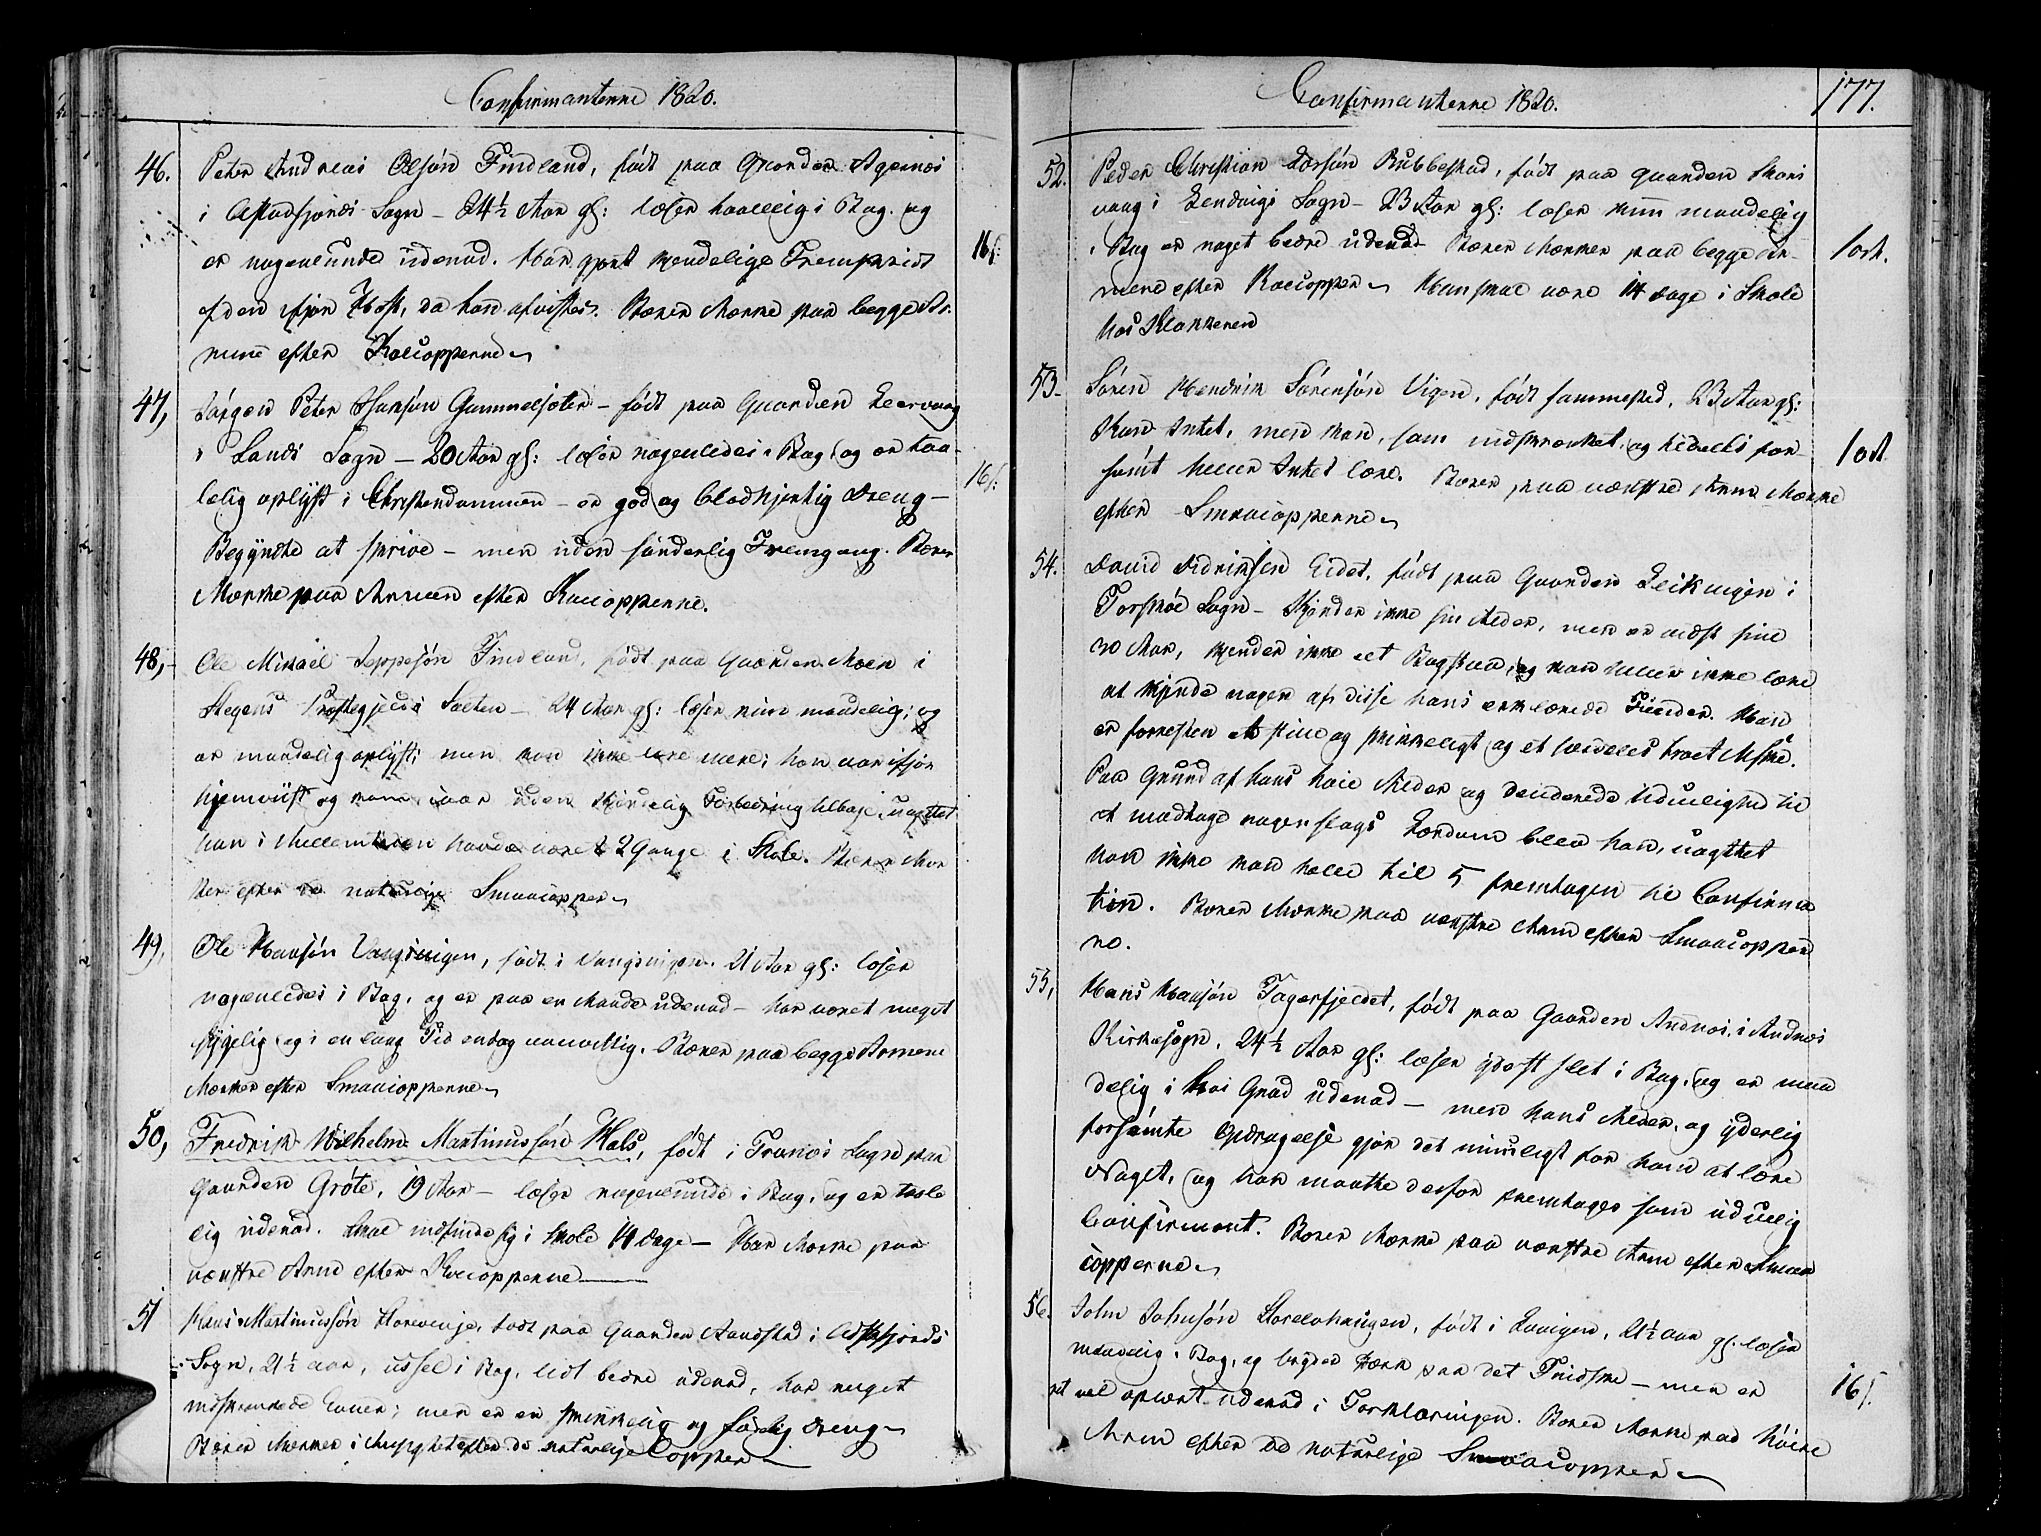 Confirmanterne 1820.
46. Peter Andreas Olsøn Findland, født paa Gaarden Agernæs
i Astafjords Sogn – 24½ Aar gl: læser i Bog. og
er nogenlunde udenad. Har gjort kjendelige Fremskridt
siden ifjor Høst, da han afvistes. Bærer Mærke paa begge Ar-
mene efter Kocopperne
16ß
47, Jørgen Peter Hansøn Gammelsæter – født paa Gaarden Leervaag
i Lands Sogn – 20 Aar gl: læser nogenledes i Bog, og er taa-
lelig oplyst i Christendommen – er god og blødhjertig Dreng –
Begyndte at skrive – men uden synderlig Fremgang. Bærer
Mærke paa Armen efter Kocopperne.
16ß:
48, Ole Mikael Jeppesøn Findland, født paa Gaarden Moen i
Stegens Præstegjelds Salten – 24 Aar gl: læser kun maadelig, og
er maadelig oplyst; men kan ikke lære mere; han var ifjor
hjemviist og kom iaar uden kjendelig Forbedring tilbage, uagtet
han i Mellemtiden havde været 2 Gange i Skole. Bærer Mær-
ker efter de naturlige Smaacopper
49, Ole Hansøn Vangsvigen, født i Vangsvigen. 21 Aar gl: læser
nogenledes i Bog, og er paa en Maade udenad – har været meget
sygelig og i en lang Tid endog vanvittig. Bærer paa begge Armene
Mærker efter Smaacopperne
50, Fredrik Wilhelm Martinussøn Hals, født i Tranøe Sogn paa
Gaarden Grøte, 19 Aar – læser nogenlunde i Bog, og er taale-
lig udenad. Skal indfinde sig i Skole 14 Dage – Har Mærke paa
venstre Arm efter Kocopperne
51 Hans Martinussøn, født paa Gaarden Aandstad i Astafjords
Sogn, 21½ aar, ussel i Bog, lidt bedre udenad, har meget
indskrænkede Evner; men er en skikkelig og Dreng
Bærer Mærker i Ansigtet efter de naturlige Copper
Confirmanterne 1820.
177.
52. Peder Christian Larsøn Bubbestad, født paa Gaarden
vaag i Lenvigs Sogn – 23 Aar gl: læser kun maadelig
i Bog er noget bedre udenad. Bærer Mærker paa begge Ar-
mene efter Kocopper Han skal være 14 Dage i Skole
hos Klokkeren
1 ort.
53. Søren Hendrik Sørensøn Vigen, født sammested, 23 Aar gl:
Kan Intet, men kan, som indskrænket, og tildeels for-
sømt heller Intet lære. Bærer paa venstre Arm Mærke
efter Smaacopperne
1 ort
54. David Didriksen Eidet, født paa Gaarden Leikvigen i
Torskøe Sogn – Kjender ikke sin Alder, men er vidst sine
30 Aar, kjender ikke eet Bogstav, og kan heller ikke lære
at kjende nogen af disse hans erklærede Fiender. Han
er forresten et stille og skikkeligt og et særdeles troet Mske.
Paa Grund af hans høie Alder og Uduelighed til
at modtage nogenslags Lærdom blev han, uagtet
han ikke kan tælle til 5 fremtagen til Confirma
tion. Bærer Mærke paa venstre Arm efter Smaacopper
ne.
55, Hans Hansøn Tagerfjeldet, født paa Gaarden Andnæs i Andnæs
Kirkesogn, 24½ Aar gl: læser yderst slet i Bog, og er maa
delig i høi Grad udenad – men hans Alder, og yderlig
forsømte Opdragelse gjør det umuligt for ham at lære
Noget, og han maatte derfor fremtages som uduelig
Confirmant. Bærer Mærke paa venstre Arm efter Smaa
copperne
56. John Johnsøn Storelvhaugen, født i Lavigen, 21½ aar gl: læser
maadelig i Bog, og bryder stærk paa det Finske – men er
ret vel oplært udenad i Forklaringen. Bærer Mærke paa høire
Arm efter de naturlige Smaacopper
16ß